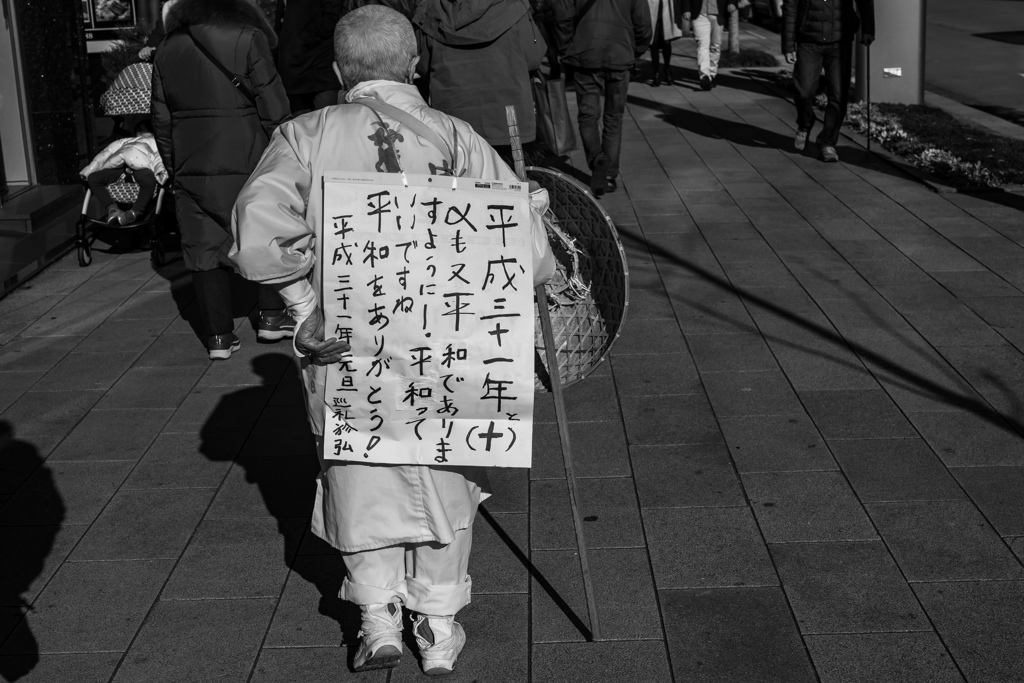 平成三十一年と(十)
〆も又平和でありま
すように!平和って
いいですね
平和をありがとう!
平成三十一年元旦 巡礼 弘